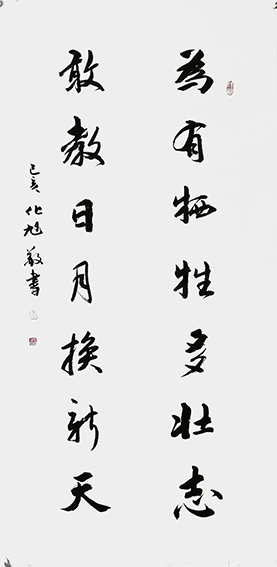 為有牺牲多壮志
敢教日月换新天
己亥化旭敬書